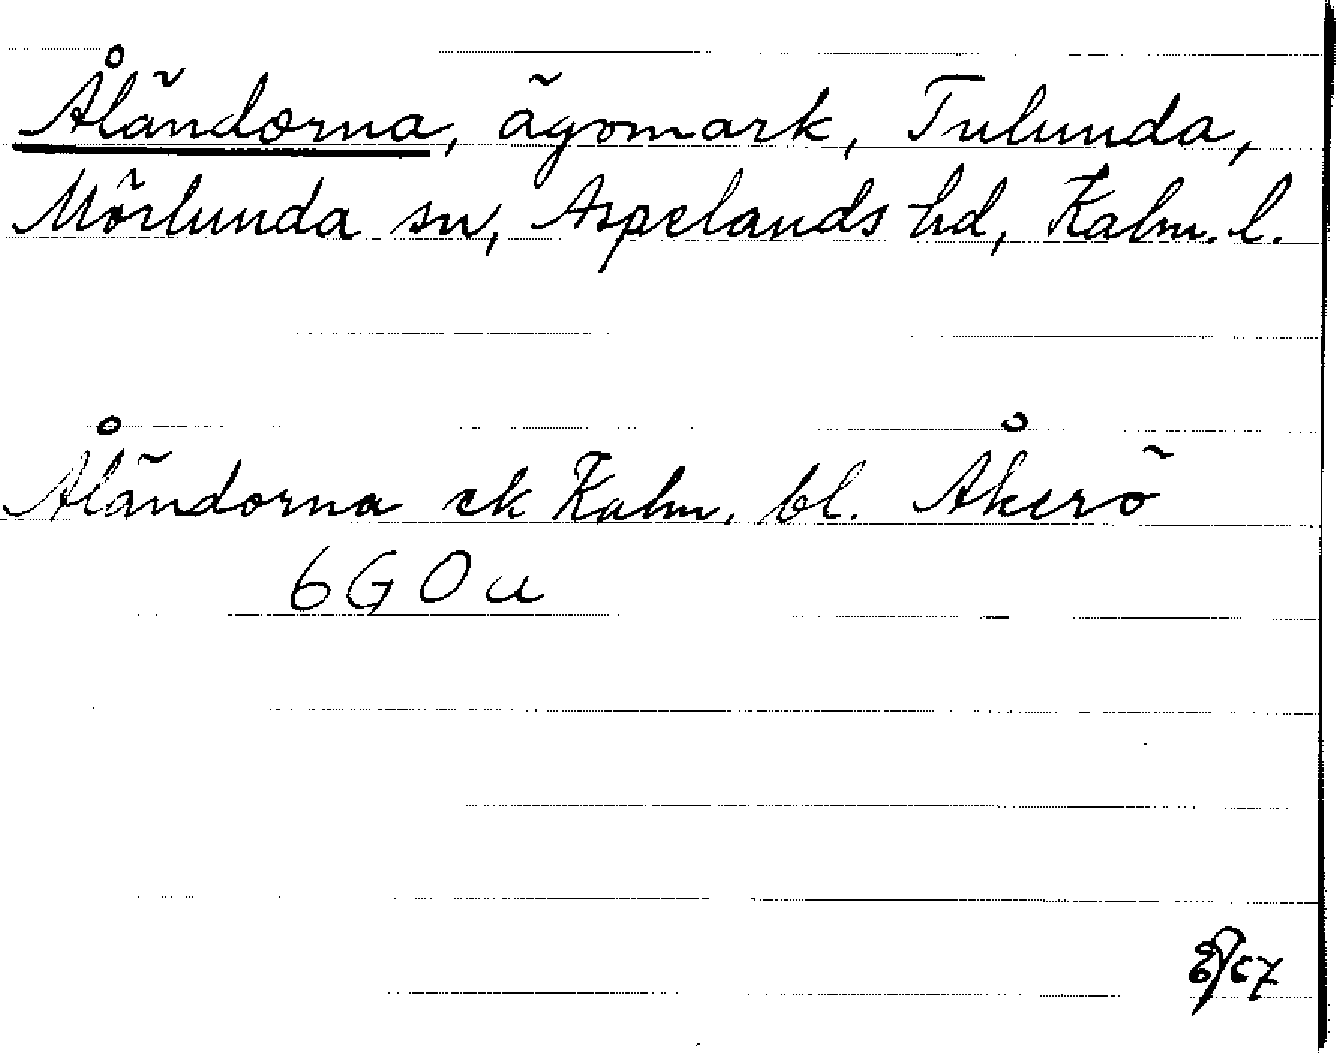 Åländorna, ägomark, Tulunda,
Mörlunda sn, Aspelands hd, Kalm. l.
Åländorna ek Kalm. bl. Åkerö
6 G O u